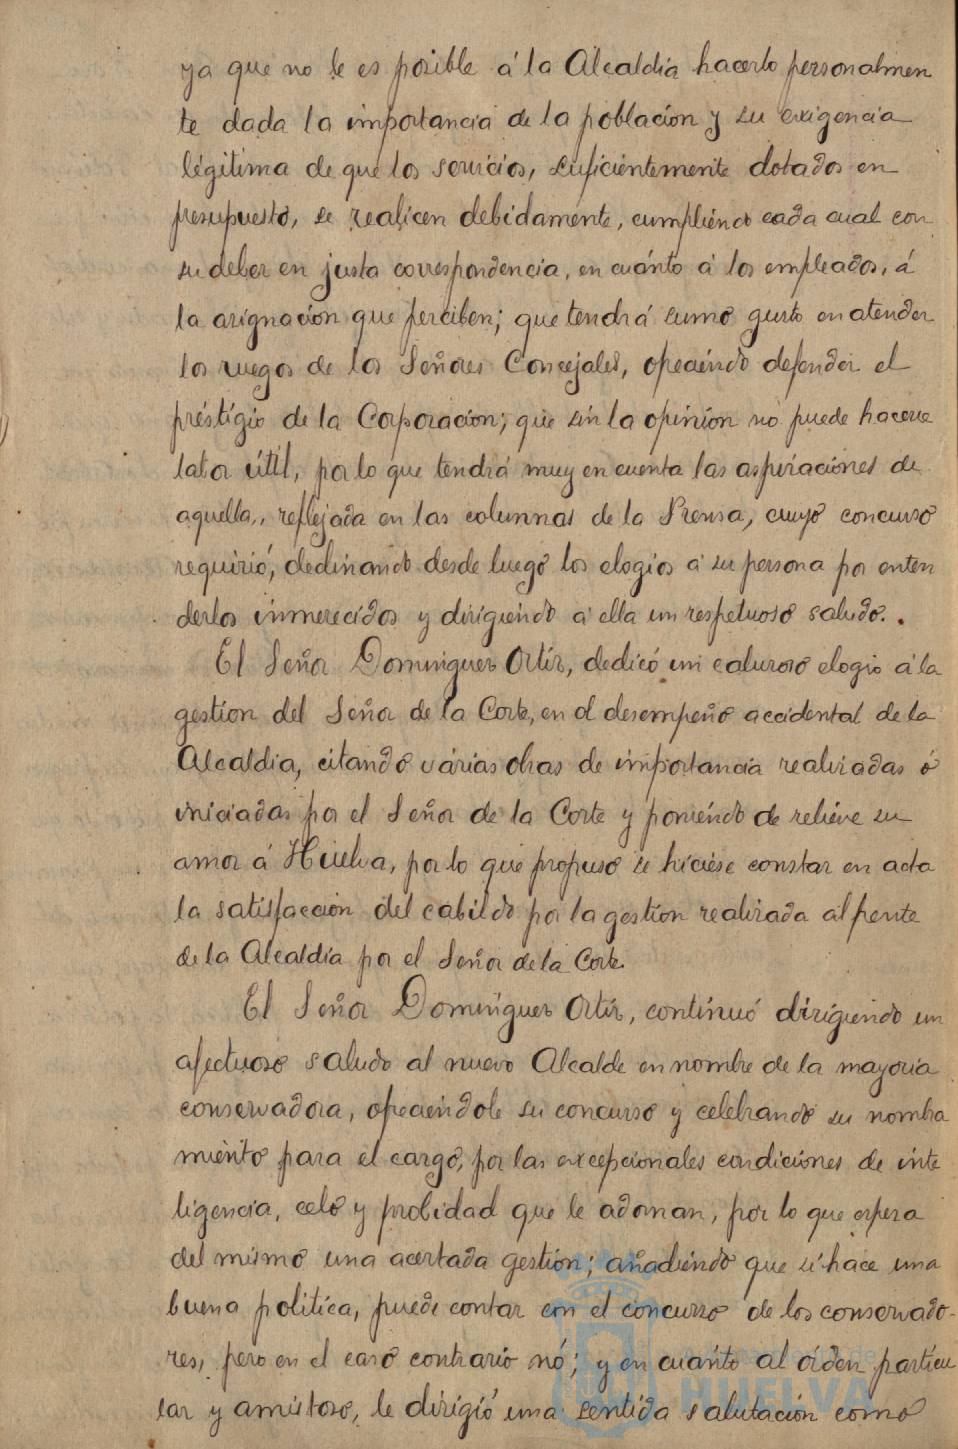 ya que no le es posible á la Alcaldía hacerlo personalmen
te dada la importancia de la población y su exigencia
légitima de que los servicios, suficientemente dotados en
presupuesto, se realicen debidamente, cumpliendo cada cual con
su deber en justa correspondencia, en cuánto á los empleados, á
la asignación que perciben; que tendrá sumo gusto en atender
los ruegos de los Señores Concejales, opeciéndo defender el
préstigio de la Corporación; que sin la opinión no puede hacerse
labor útil, por lo que tendrá muy en cuenta las aspiraciones de
aquella,, reflejada en las columnas de la Prensa, cuyo concurso
requirió, declinando desde luego los elogios á su persona por enten
derlos inmerecidos y dirigiendo á ella un respetuoso saludo.
El Señor Dominguez Ortíz, dedicó un caluroso elogio á la
gestion del Señor de la Corte, en el desempeño accidental de la
Alcaldia, citando várias obras de importancia realizadas ó
iniciadas por el Señor de la Corte y poniéndo de reliéve su
amor á Huelva, por lo que propuso se hiciése constar en acta
la satisfacción del cabildo por la gestion realizada al frente
de la Alcaldía por el Señor de la Corte.
El Señor Dominguez Ortíz, continuó dirigiendo un
afectuoso saludo al nuevo Alcalde en nombre de la mayoria
conservadora, opeciéndole su concurso y celebrando su nombra
miénto para el cargo, por las excepcionales condiciones de inte
ligencia, celo y probidad que le adornan, por lo que espera
del mismo una acertada gestión; añadiéndo que si hace una
buena politica, puede contar con el concurso de los conservado-
res, pero en el caso contrario nó; y en cuanto al órden particu
lar y amistoso, le dirigió una sentida salutación como
Ayuntamiento de
HUELVA